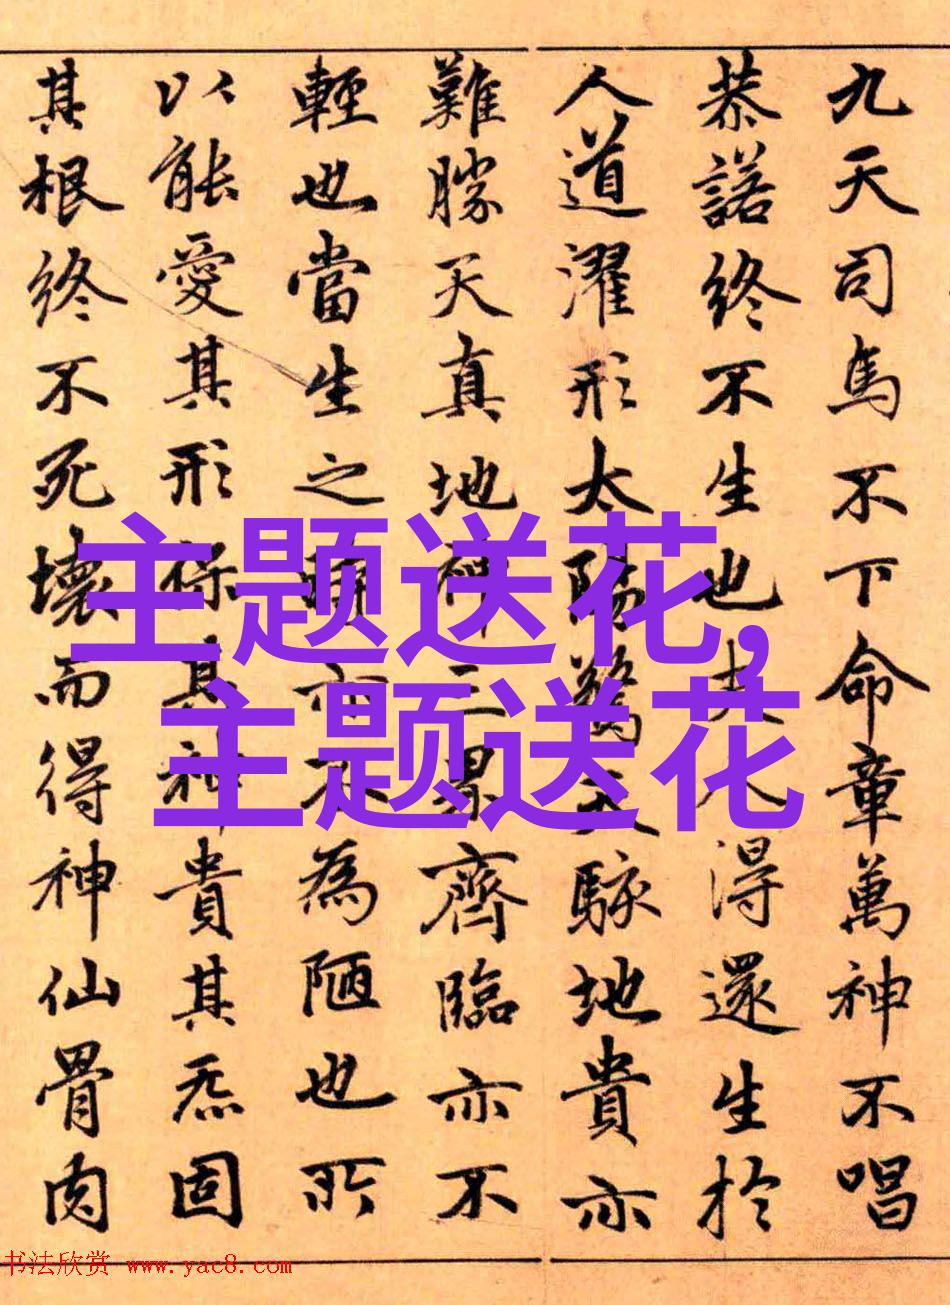 九天司馬不下命章萬神不唱
恭諾終不生也夫人得還生於
人道濯形太陽驚天駭地貴亦
難勝天真地神三界齊臨亦不
輕也當生之時亦不為陋也所
以能愛其形保其神貴其炁固
其根終不死壞而得神仙骨肉
主题送花,
主题送花
书法欣赏 www.yac8.com